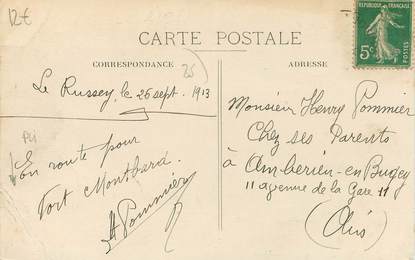 12€
CARTE POSTALE
CORRESPONDANCE
ADRESSE
REPUBLIQUE FRANÇAISE
5c
Le Russey, le 26 sept. 1913
En route pour
Fort Montbard.
H Pommier
Monsieur Henry Pommier
Chez ses Parents
à Amberieu-en-Bugey
11 avenue de la Gare 11
(Ain)